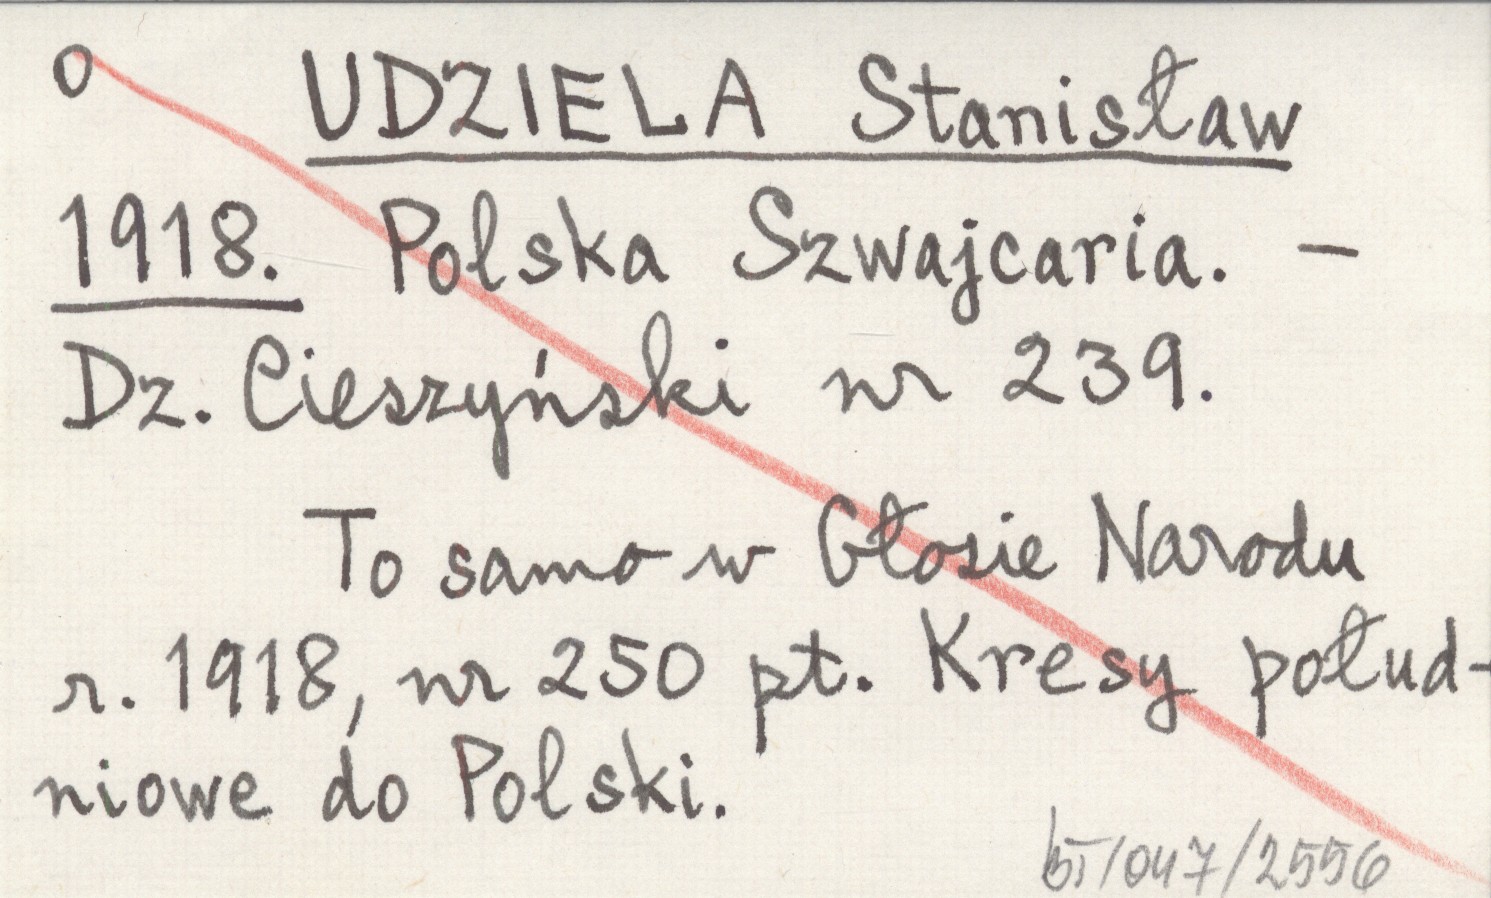 O UDZIELA Stanisław
1918. Polska Szwajcaria. —
Dz. Cieszyński nr 239.
To samo w Głosie Narodu
r. 1918, nr 250 pt. Kresy połud-
niowe do Polski.
bT/047/2556